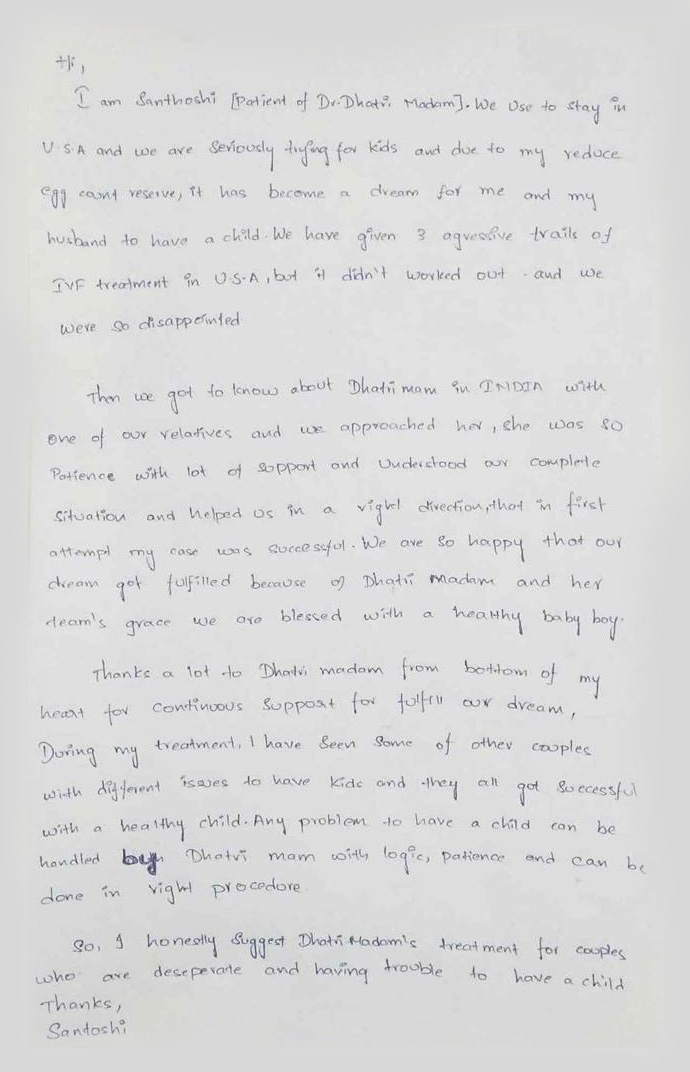 Hi,
I am Santhoshi [Patient of Dr. Dhatri Madam]. We Use to stay in
U.S.A and we are Seriously trying for kids and due to my reduce
egg count reserve, it has become a dream for me and my
husband to have a child. We have given 3 agressive trails of
IVF treatment in U.S.A, but it didn't worked out. and we
were so disappointed
Then we got to know about Dhatri mam in INDIA with
one of our relatives and we approached her, she was so
Patience with lot of support and Understood our complete
Situation and helped us in a right direction, that in first
attempt my case was successful. We are so happy that our
dream got fulfilled because of Dhatri Madam and her
team's grace we are blessed with a healthy baby boy.
Thanks a lot to Dhatri madam from bottom of my
heart for continuous Support for fulfill our dream,
During my treatment, I have Seen Some of other couples
with different issues to have kids and they all got Successful
with a healthy child. Any problem to have a child can be
handled by Dhatri mam with logic, patience and can be
done in right procedore.
So, I honestly Suggest Dhatri Madam's treatment for couples
who are deseperate and having trouble to have a child
Thanks,
Santoshi